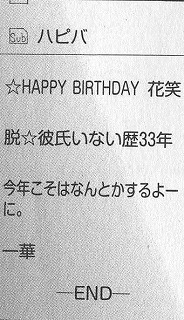 Sub ハピバ
☆HAPPY BIRTHDAY 花笑
脱☆彼氏いない歴33年
今年こそはなんとかするよー
に。
一華
―END―